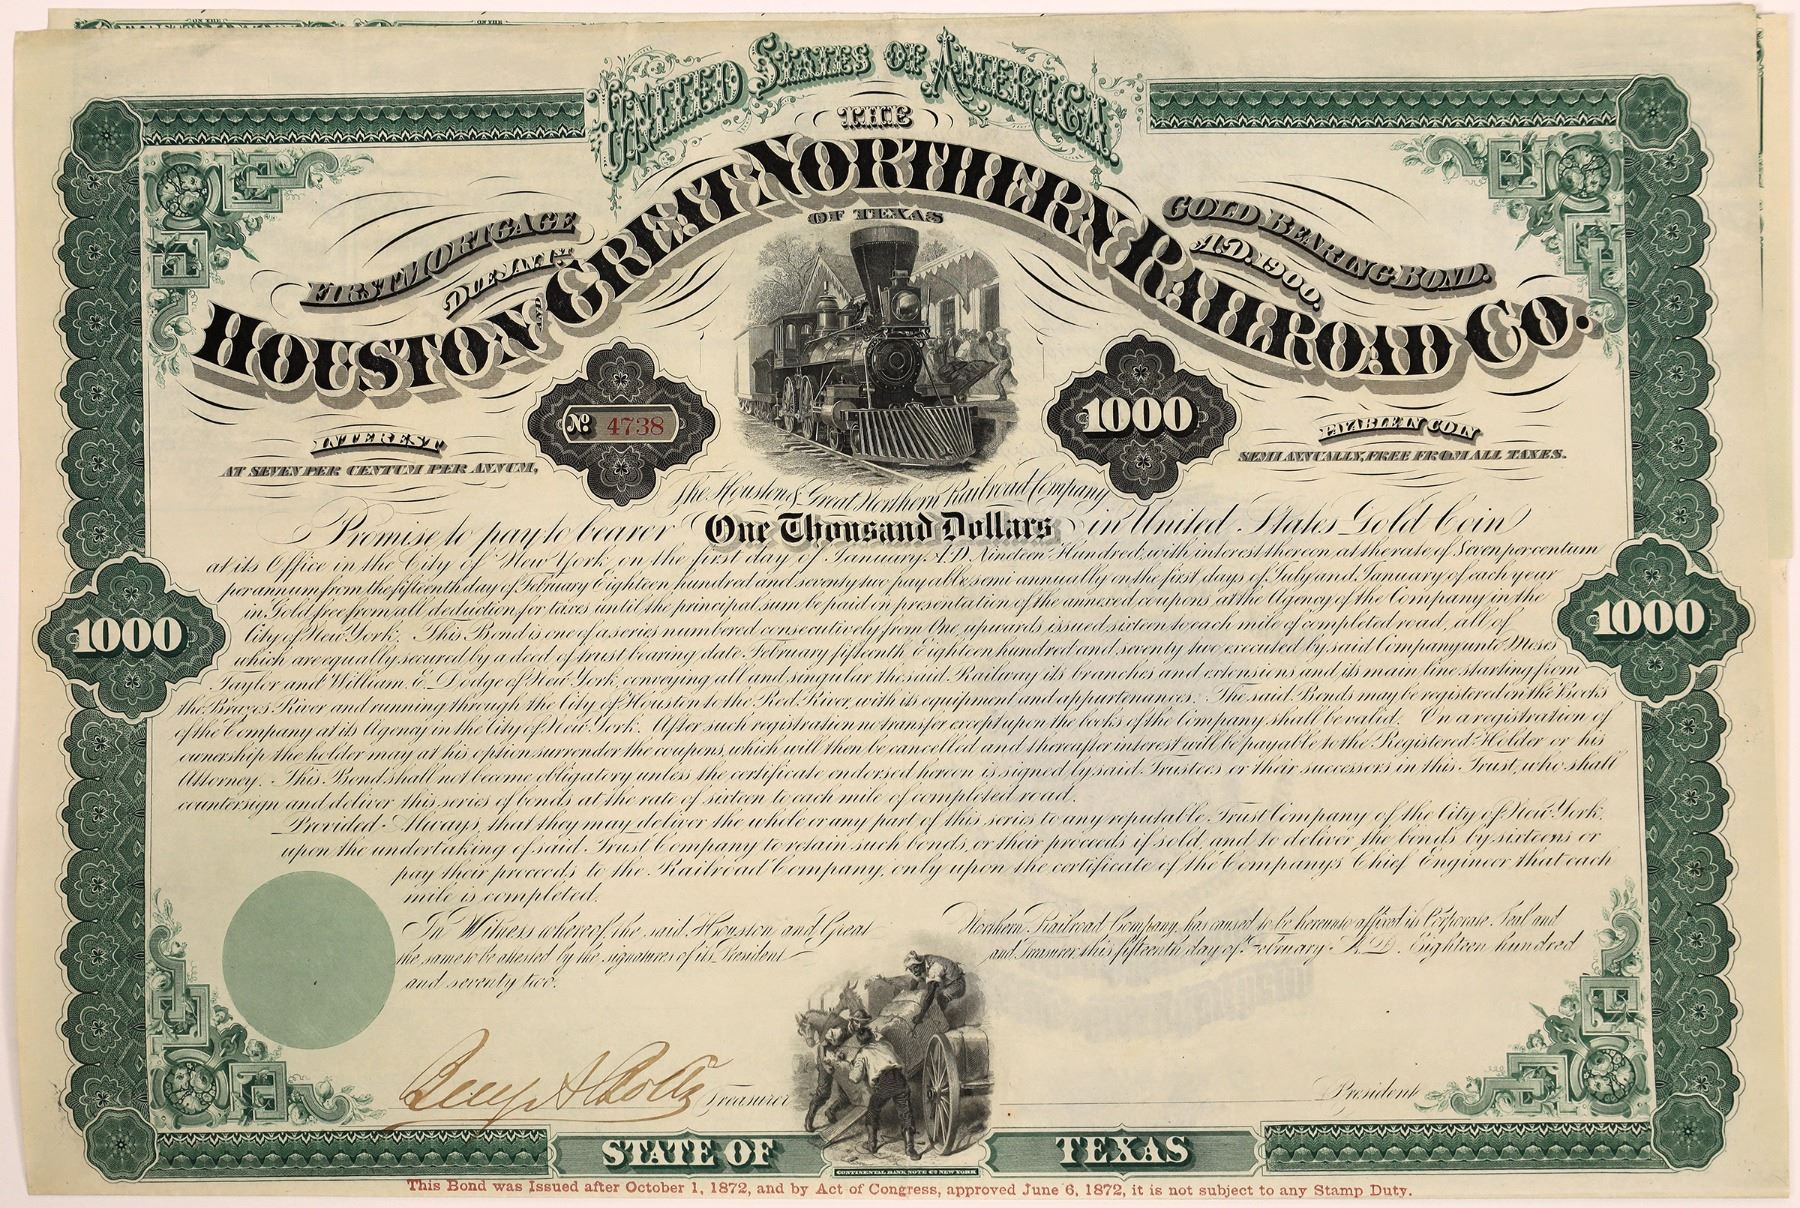 UNITED STATES OF AMERICA.
THE
HOUSTON AND GREAT NORTHERN RAILROAD CO.
OF TEXAS
FIRST MORTGAGE
GOLD BEARING BOND.
DUE JAN 1ST
A.D. 1900.
No 4738
1000
INTEREST
PAYABLE IN COIN
AT SEVEN PER CENTUM PER ANNUM,
SEMI ANNUALLY, FREE FROM ALL TAXES.
The Houston & Great Northern Railroad Company
Promise to pay to bearer One Thousand Dollars in United States Gold Coin
at its Office in the City of New York, on the first day of January A.D. Nineteen Hundred, with interest thereon, at the rate of Seven per centum
per annum from the fifteenth day of February Eighteen hundred and seventy two payable semi annually on the first days of July and January of each year
in Gold free from all deduction for taxes until the principal sum be paid on presentation of the annexed coupons, at the Agency of the Company in the
City of New York. This Bond is one of a series numbered consecutively from One, upwards issued sixteen to each mile of completed road, all of
which are equally secured by a deed of trust bearing date February fifteenth Eighteen hundred and seventy two executed by said Company unto Moses
Taylor and William E. Dodge of New York, conveying all and singular the said Railway its branches and extensions and its main line starting from
the Brazos River and running through the City of Houston to the Red River, with its equipment and appurtenances. The said Bonds may be registered on the Books
of the Company at its Agency in the City of New York. After such registration no transfer except upon the books of the Company shall be valid. On a registration of
ownership the holder may at his option surrender the coupons, which will then be cancelled and thereafter interest will be payable to the Registered Holder or his
Attorney. This Bond shall not become obligatory unless the certificate endorsed hereon is signed by said Trustees or their successors in this Trust, who shall
countersign and deliver this series of bonds at the rate of sixteen to each mile of completed road.
1000
1000
Provided Always, that they may deliver the whole or any part of this series to any reputable Trust Company of the City of New York,
upon the undertaking of said Trust Company to retain such bonds, or their proceeds if sold, and to deliver the bonds by sixteens or
pay their proceeds to the Railroad Company, only upon the certificate of the Company's Chief Engineer that each
mile is completed.
In Witness whereof, the said Houston and Great Northern Railroad Company, has caused to be hereunto affixed its Corporate Seal and
the same to be attested by the signatures of its President and Treasurer, this fifteenth day of February A.D. Eighteen hundred
and seventy two.
Treasurer
President
STATE OF TEXAS
CONTINENTAL BANK NOTE CO NEW YORK
This Bond was Issued after October 1, 1872, and by Act of Congress, approved June 6, 1872, it is not subject to any Stamp Duty.